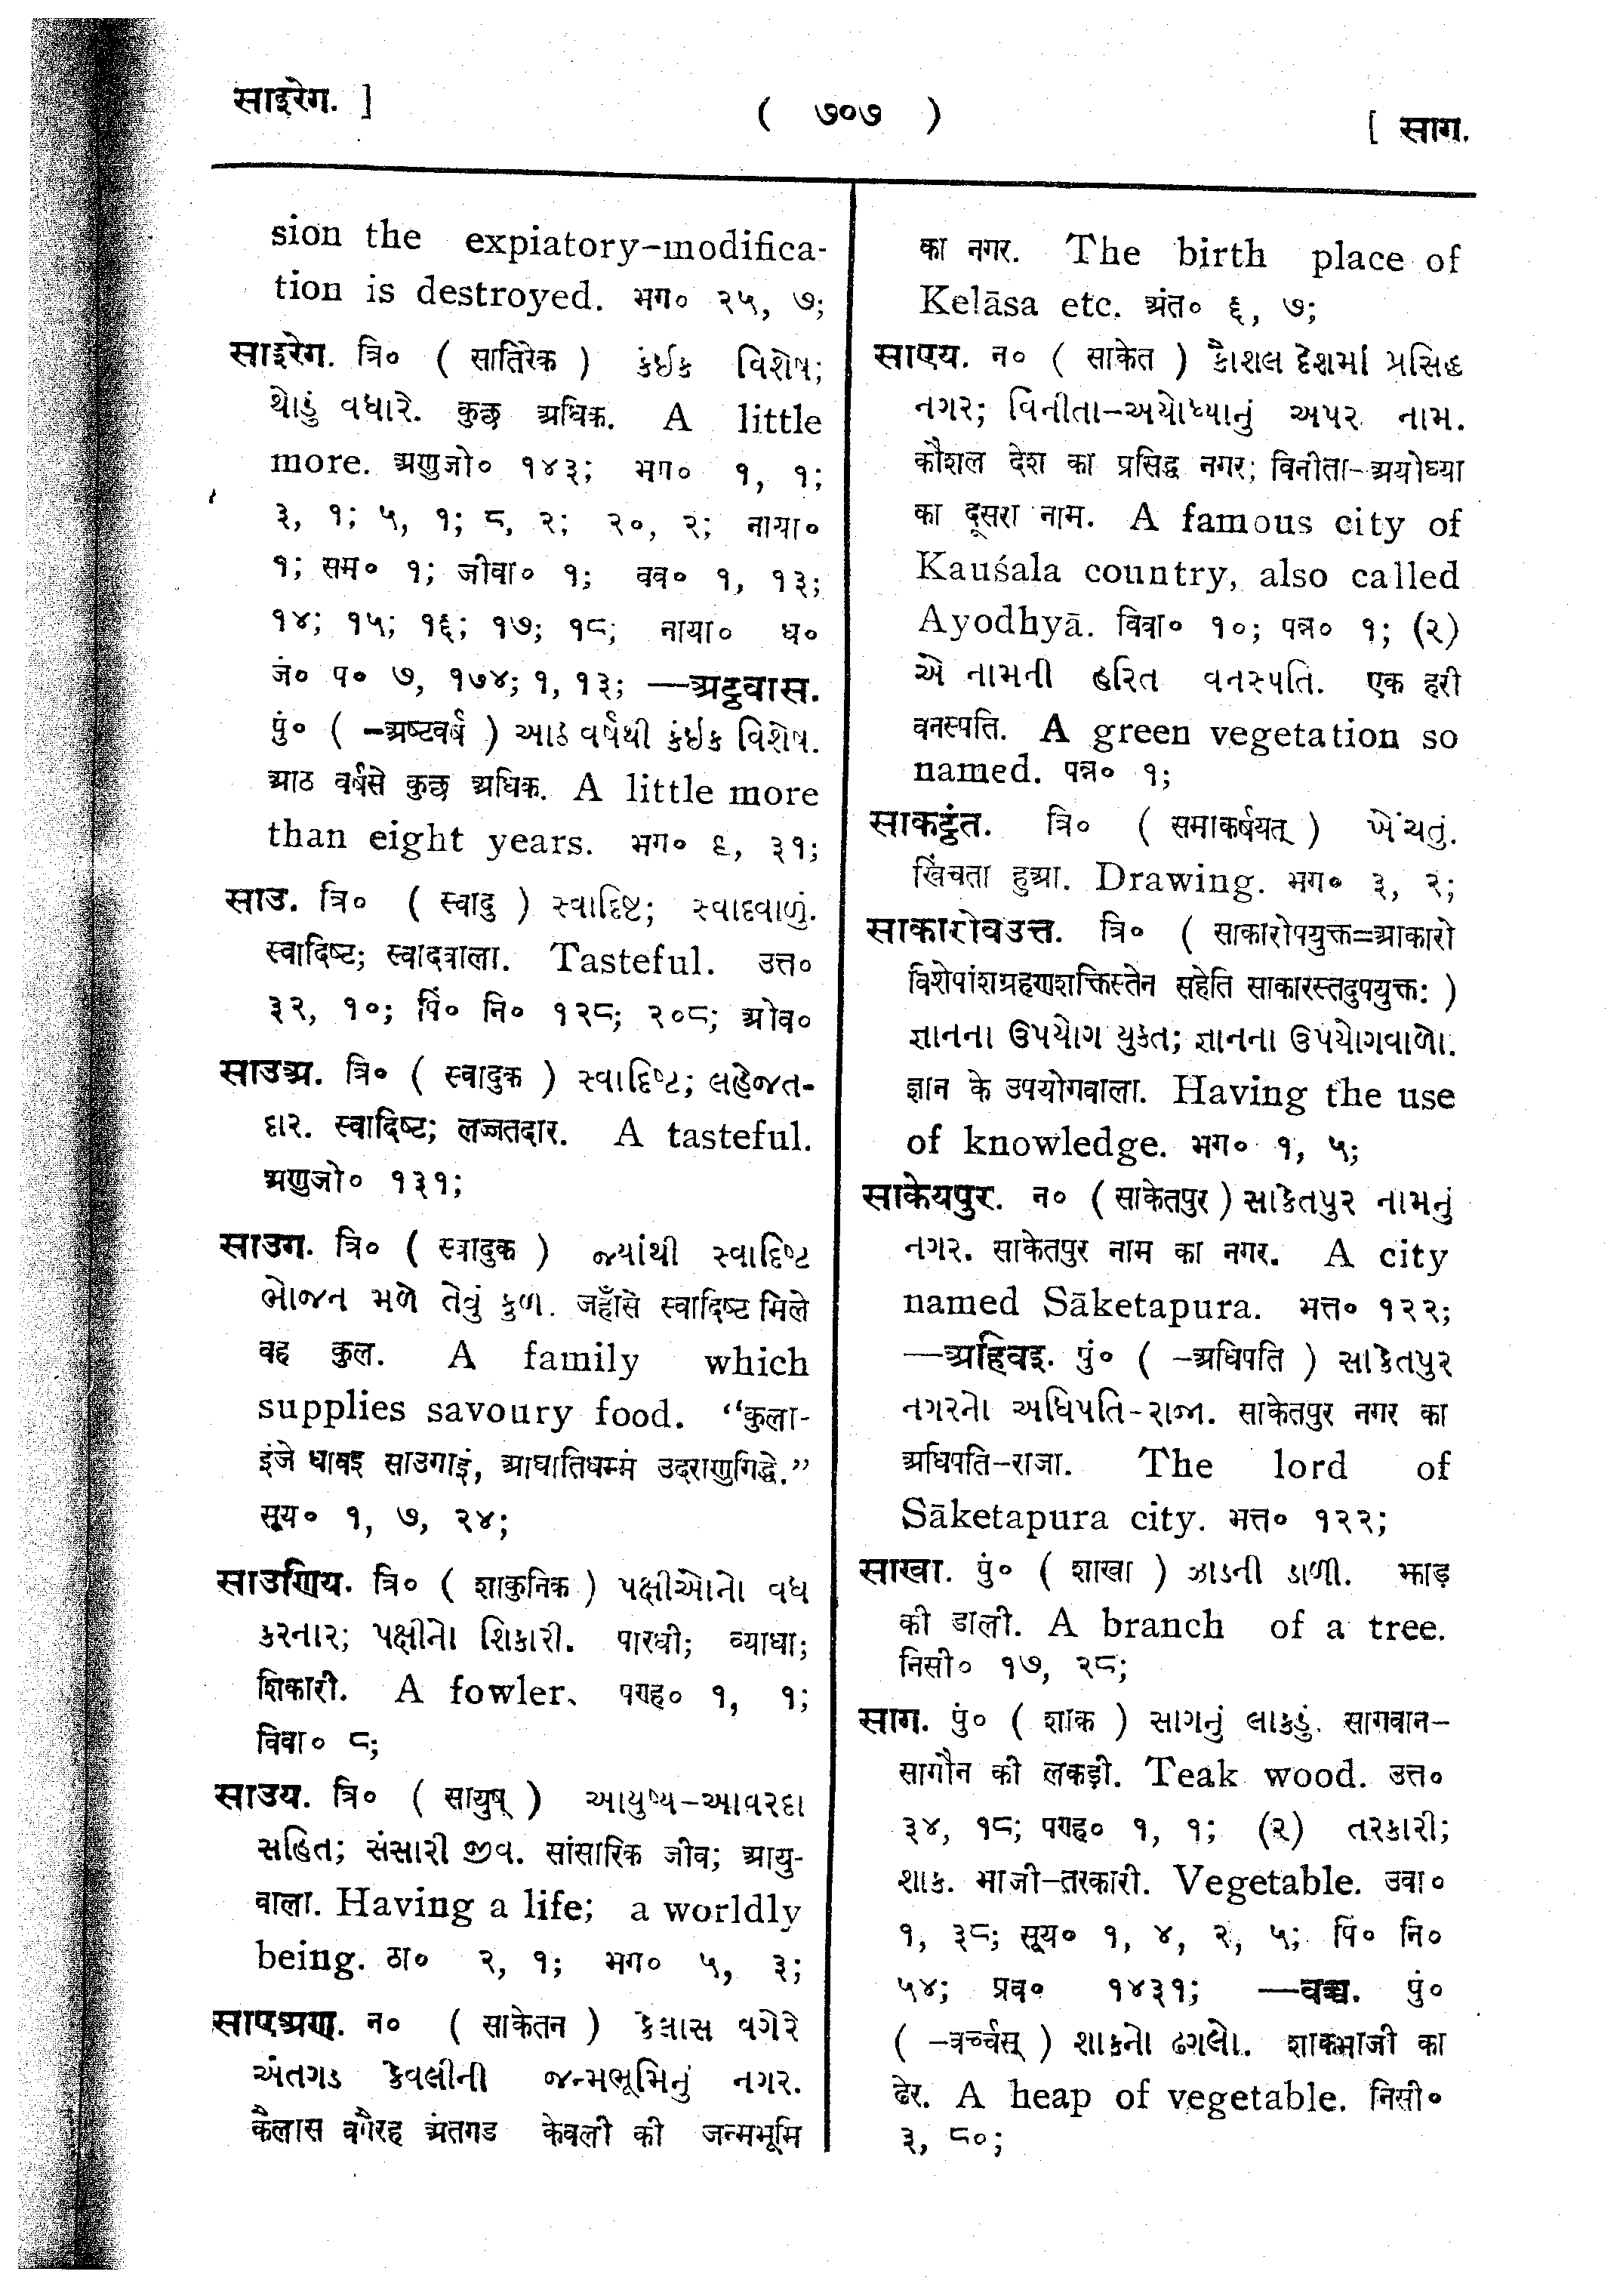 साइरेग. ]
( ७०७ )
[ साग.
sion the expiatory-modifica-
tion is destroyed. भग० २५, ७;
साइरेग. त्रि० ( सातिरेक ) કંઈક વિશેષ;
થોડું વધારે. कुछ अधिक. A little
more. अणुजो० १४३; भग० १, १;
३, १; ५, १; ८, २; २०, २; नाया०
१; सम० १; जीवा० १; वव० १, १३;
१४; १५; १६; १७; १८; नाया० ध०
जं० प० ७, १७४; १, १३; —अट्ठवास.
पुं० ( -अष्टवर्ष ) આઠ વર્ષથી કંઈક વિશેષ.
आठ वर्षसे कुछ अधिक. A little more
than eight years. भग० ६, ३१;
साउ. त्रि० ( स्वादु ) સ્વાદિષ્ટ; સ્વાદવાળું.
स्वादिष्ट; स्वादवाला. Tasteful. उत्त०
३२, १०; पिं० नि० १२८; २०८; ओव०
साउअ. त्रि० ( स्वादुक ) સ્વાદિષ્ટ; લહેજત-
દાર. स्वादिष्ट; लज्जतदार. A tasteful.
अणुजो० १३१;
साउग. त्रि० ( स्वादुक ) જ્યાંથી સ્વાદિષ્ટ
ભોજન મળે તેવું કુળ. जहाँसे स्वादिष्ट मिले
वह कुल. A family which
supplies savoury food. “कुला-
इंजे धावइ साउगाइं, आघातिधम्मं उदराणुगिद्धे.”
सूय० १, ७, २४;
साउणिय. त्रि० ( शाकुनिक ) પક્ષીઓનો વધ
કરનાર; પક્ષીનો શિકારી. पारधी; व्याधा;
शिकारी. A fowler. पण्ह० १, १;
विवा० ८;
साउय. त्रि० ( सायुष् ) આયુષ્ય-આવરદા
સહિત; સંસારી જીવ. सांसारिक जीव; आयु-
वाला. Having a life; a worldly
being. ठा० २, १; भग० ५, ३;
साएअण. न० ( साकेतन ) કેલાસ વગેરે
અંતગડ કેવલીની જન્મભૂમિનું નગર.
कैलास वगैरह अंतगड केवली की जन्मभूमि
का नगर. The birth place of
Kelāsa etc. अंत० ६, ७;
साएय. न० ( साकेत ) કૌશલ દેશમાં પ્રસિદ્ધ
નગર; વિનીતા-અયોધ્યાનું અપર નામ.
कौशल देश का प्रसिद्ध नगर; विनीता-अयोध्या
का दूसरा नाम. A famous city of
Kauśala country, also called
Ayodhyā. विवा० १०; पन्न० १; (२)
એ નામની હરિત વનસ્પતિ. एक हरी
वनस्पति. A green vegetation so
named. पन्न० १;
साकट्ठंत. त्रि० ( समाकर्षयत् ) ખેંચતું.
खिंचता हुआ. Drawing. भग० ३, २;
साकारोवउत्त. त्रि० ( साकारोपयुक्त=आकारो
विशेषांशग्रहणशक्तिस्तेन सहेति साकारस्तदुपयुक्तः )
જ્ઞાનના ઉપયોગ યુક્ત; જ્ઞાનના ઉપયોગવાળો.
ज्ञान के उपयोगवाला. Having the use
of knowledge. भग० १, ५;
साकेयपुर. न० ( साकेतपुर ) સાકેતપુર નામનું
નગર. साकेतपुर नाम का नगर. A city
named Sāketapura. भत्त० १२२;
—अहिवइ. पुं० ( -अधिपति ) સાકેતપુર
નગરનો અધિપતિ-રાજા. साकेतपुर नगर का
अधिपति-राजा. The lord of
Sāketapura city. भत्त० १२२;
साखा. पुं० ( शाखा ) ઝાડની ડાળી. झाड़
की डाली. A branch of a tree.
निसी० १७, २८;
साग. पुं० ( शाक ) સાગનું લાકડું. सागवान-
सागौन की लकड़ी. Teak wood. उत्त०
३४, १८; पण्ह० १, १; (२) તરકારી;
શાક. भाजी-तरकारी. Vegetable. उवा०
१, ३८; सूय० १, ४, २, ५; पिं० नि०
५४; प्रव० १४३१; —वच्च. पुं०
( -वर्च्चस् ) શાકનો ઢગલો. शाकभाजी का
ढेर. A heap of vegetable. निसी०
३, ८०;